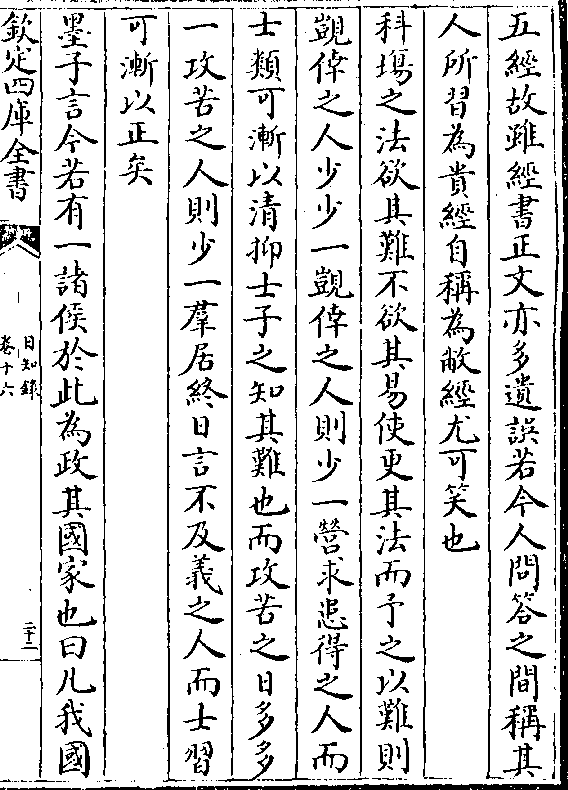 五經故雖經書正文亦多遺誤若今人問答之間稱其
人所習為貴經自稱為敝經尤可笑也
科塲之法欲其難不欲其易使更其法而予之以難則
覬倖之人少少一覬倖之人則少一營求患得之人而
士類可漸以清抑士子之知其難也而攻苦之日多多
一攻苦之人則少一羣居終日言不及義之人而士習
可漸以正矣
墨子言今若有一諸侯於此為政其國家也曰凡我國
欽定四庫全書
日知錄
卷十六
二十二